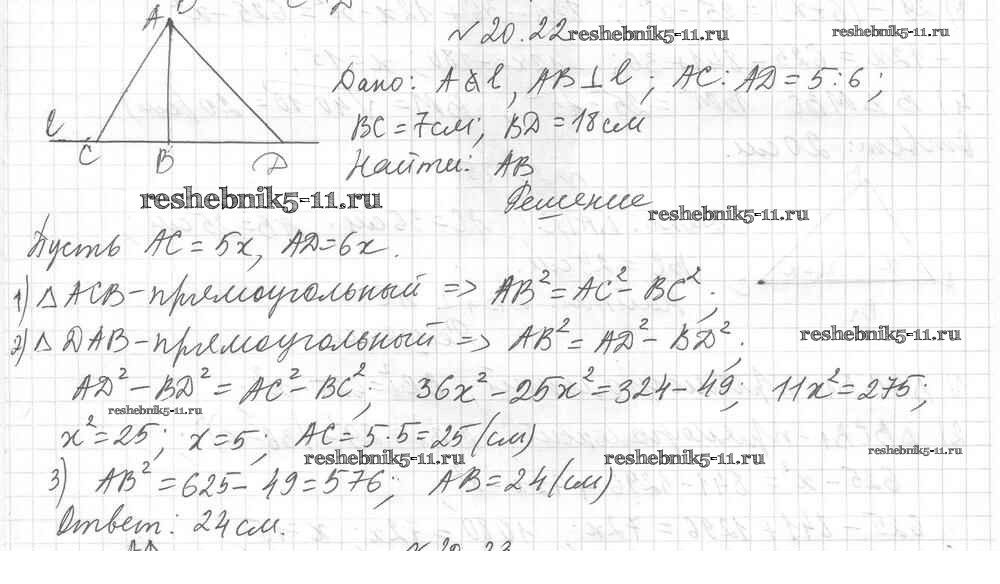 №20.22 reshebnik5-11.ru reshebnik5-11.ru
A
Дано: A ∉ l, AB ⊥ l; AC : AD = 5 : 6;
l C B D
BC = 7 см; BD = 18 см
Найти: AB
reshebnik5-11.ru
Решение
reshebnik5-11.ru
Пусть AC = 5x, AD = 6x.
1) △ ACB - прямоугольный => AB² = AC² - BC²;
2) △ DAB - прямоугольный => AB² = AD² - BD²;
reshebnik5-11.ru
AD² - BD² = AC² - BC²; 36x² - 25x² = 324 - 49; 11x² = 275;
reshebnik5-11.ru
x² = 25; x = 5; AC = 5·5 = 25 (см)
reshebnik5-11.ru reshebnik5-11.ru reshebnik5-11.ru
3) AB² = 625 - 49 = 576; AB = 24 (см)
Ответ: 24 см.